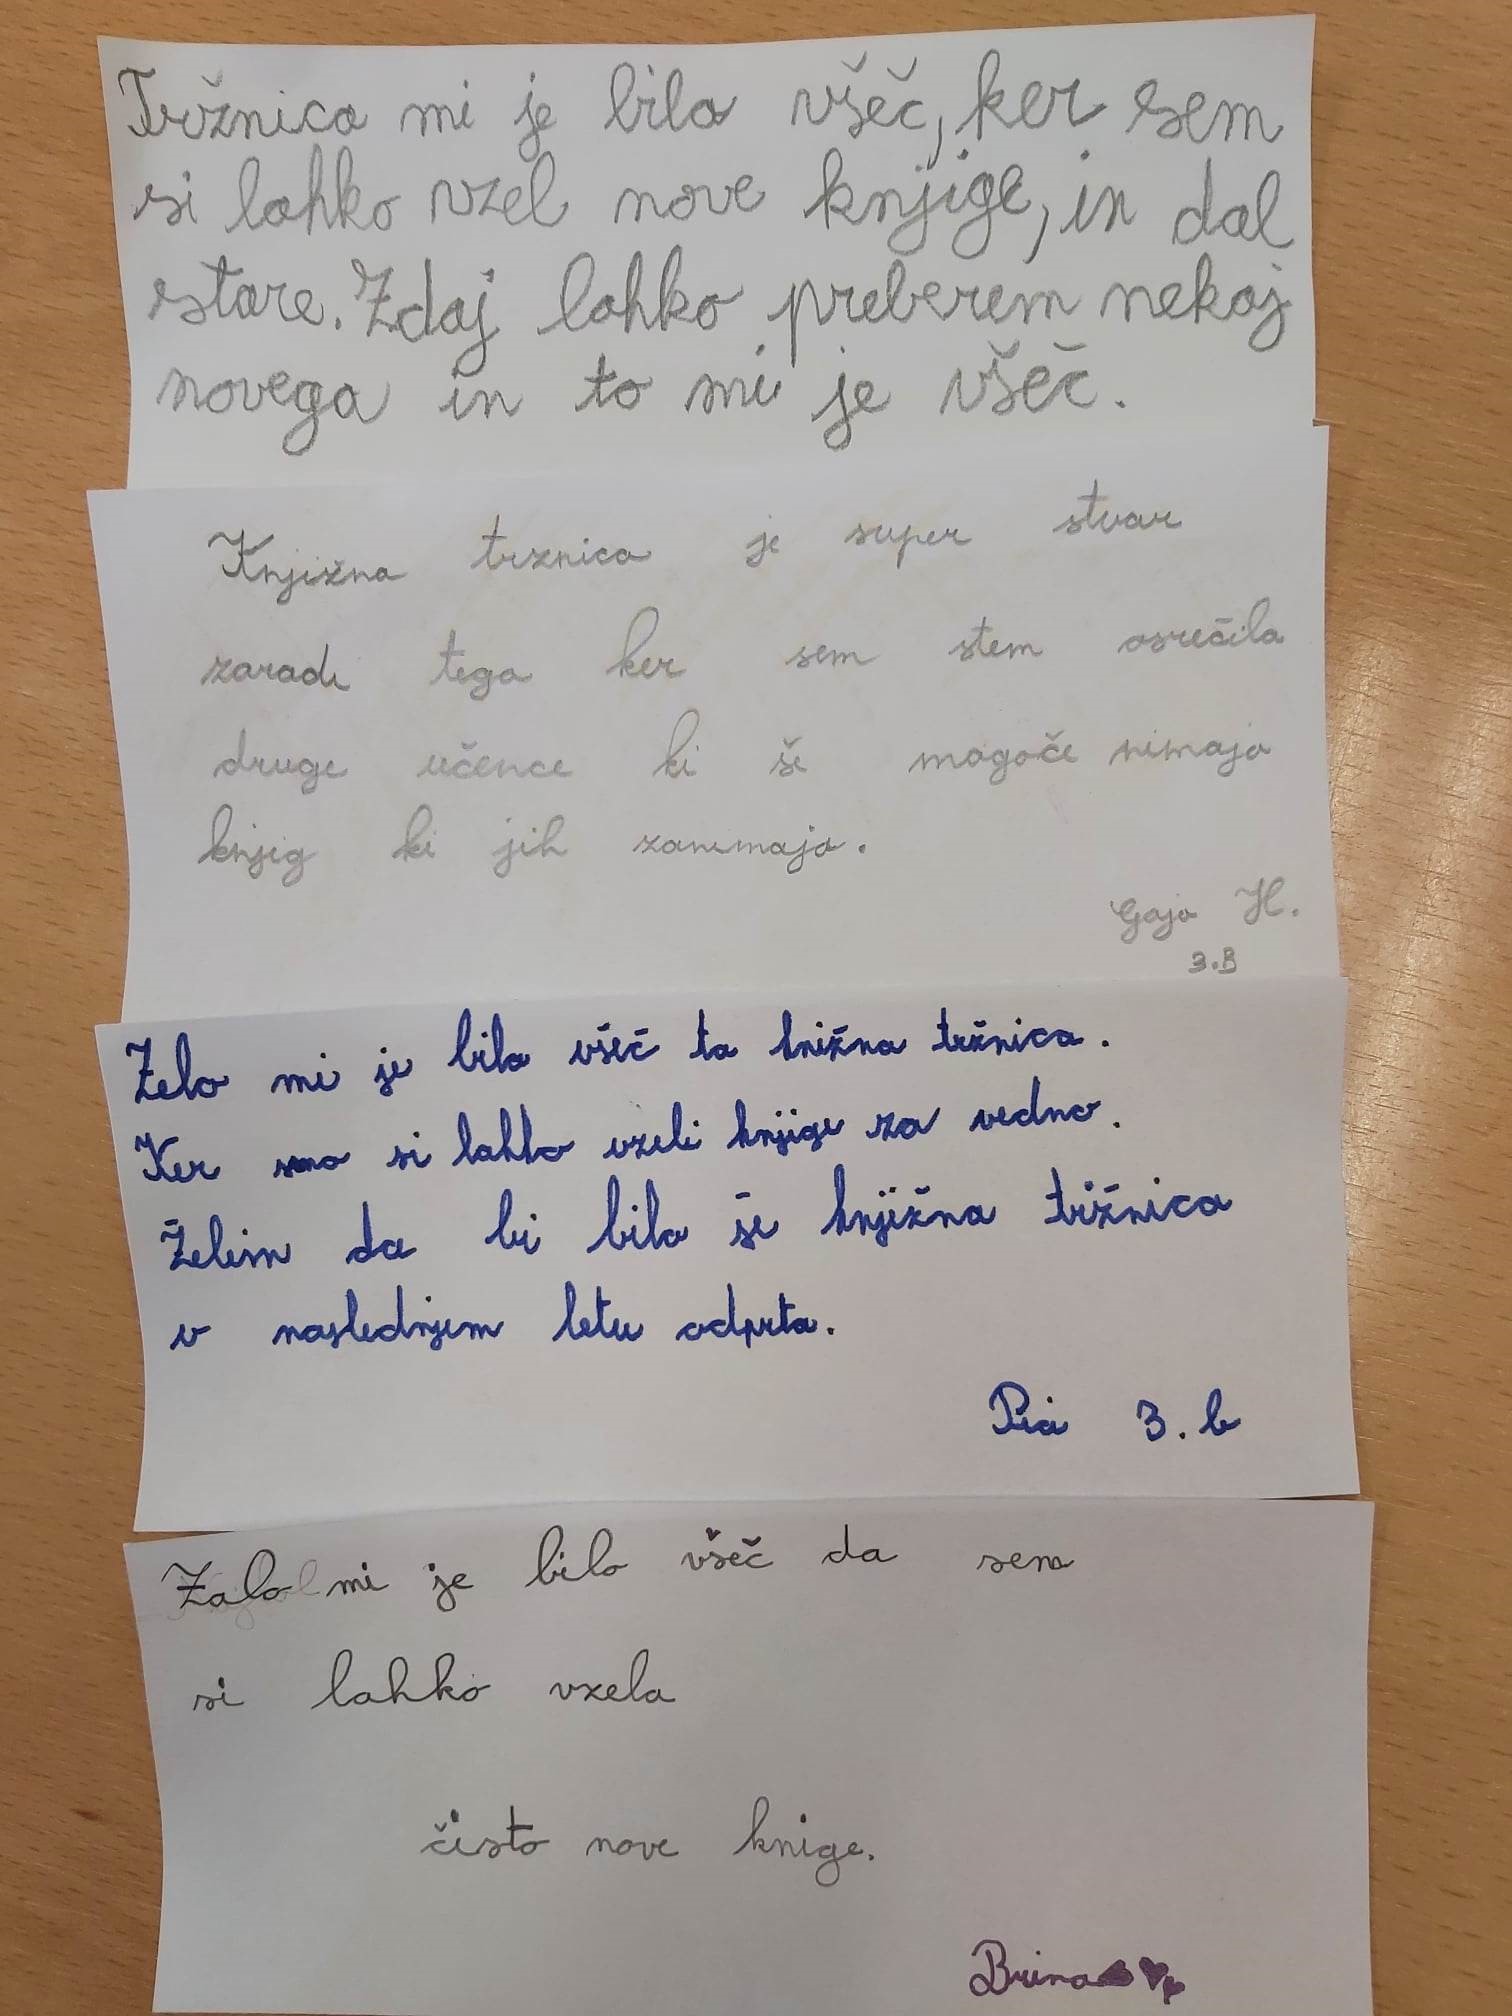 Tržnica mi je bila všeč, ker sem
si lahko vzel nove knjige, in dal
stare. Zdaj lahko preberem nekaj
novega in to mi je všeč.
Knjižna trznica je super stvar
zaradi tega ker sem stem osrečila
druge učence ki še mogoče nimajo
knjig ki jih zanimajo.
Gaja H.
3.B
Zelo mi je bila všeč ta knižna tržnica.
Ker smo si lahko vzeli knjige za vedno.
Želim da bi bila še knjižna tržnica
v naslednjem letu odprta.
Pia 3. b
Zalo mi je bilo všeč da sem
si lahko vzela
čisto nove knige.
Brina